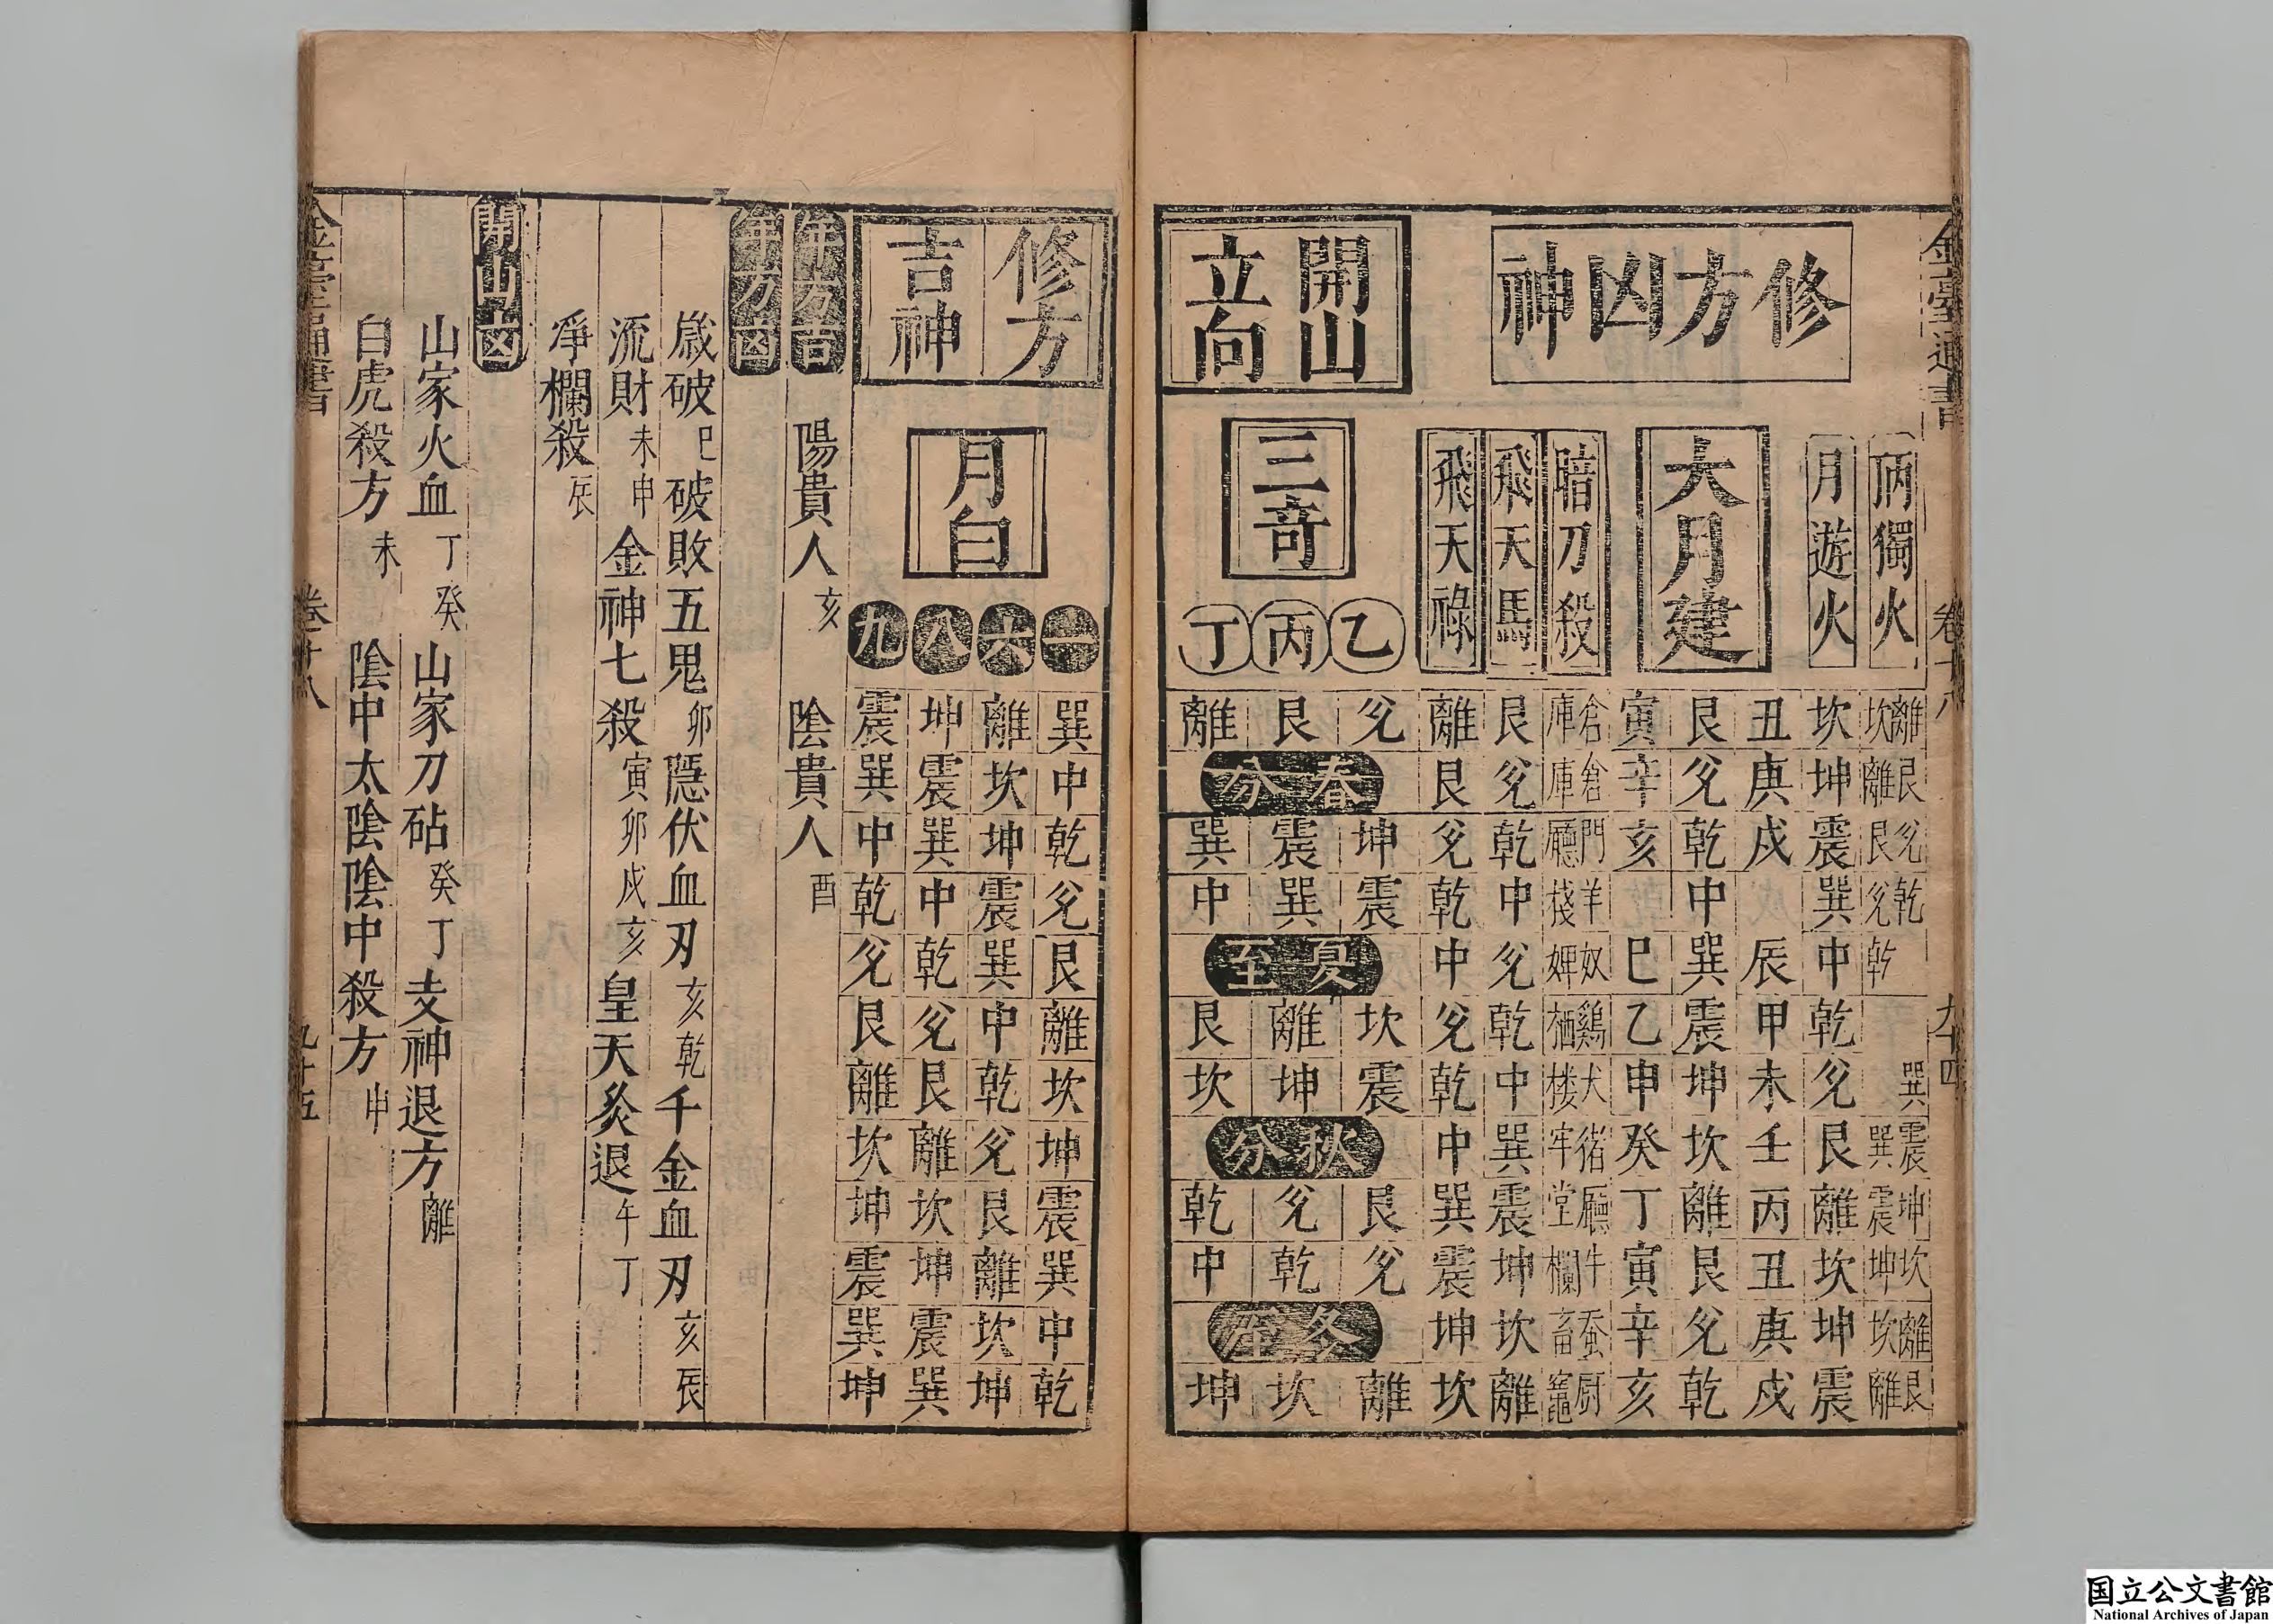 金臺通書 卷十八 九十四
修方凶神
丙獨火 離坎 艮離 兊艮 乾兊 乾 巽 震巽 坤震 坎坤 離坎 艮離
月遊火 坎 坤 震 巽 中 乾 兊 艮 離 坎 坤 震
大月建
丑 庚 戌 辰 甲 未 壬 丙 丑 庚 戌
艮 兊 乾 中 巽 震 坤 坎 離 艮 兊 乾
寅 辛 亥 巳 乙 申 癸 丁 寅 辛 亥
暗刀殺 倉庫 倉庫 門廳 羊棧 奴婢 鷄栖 犬楼 猪牢 廳堂 牛欄 蚕畜 厨竈
飛天馬 艮 兊 乾 中 兊 乾 中 巽 震 坤 坎 離
飛天祿 離 艮 兊 乾 中 兊 乾 中 巽 震 坤 坎
開山立向
三奇
乙 兊 坤 震 坎 震 艮 兊 離
丙 艮 震 巽 離 坤 兊 乾 坎
丁 離 巽 中 艮 坎 乾 中 坤
春分
夏至
秋分
冬至
修方吉神
月白
一 巽 中 乾 兊 艮 離 坎 坤 震 巽 中 乾
六 離 坎 坤 震 巽 中 乾 兊 艮 離 坎 坤
八 坤 震 巽 中 乾 兊 艮 離 坎 坤 震 巽
九 震 巽 中 乾 兊 艮 離 坎 坤 震 巽 坤
年方吉
陽貴人亥 陰貴人酉
年方凶
歲破巳 破敗五鬼卯 隱伏血刃亥乾 千金血刃亥辰
流財未申 金神七殺寅卯戌亥 皇天炙退午丁
淨欄殺辰
開山凶
山家火血丁癸 山家刀砧癸丁 支神退方離
白虎殺方未 陰中太陰陰中殺方申
金臺通書 卷十八 九十五
国立公文書館
National Archives of Japan